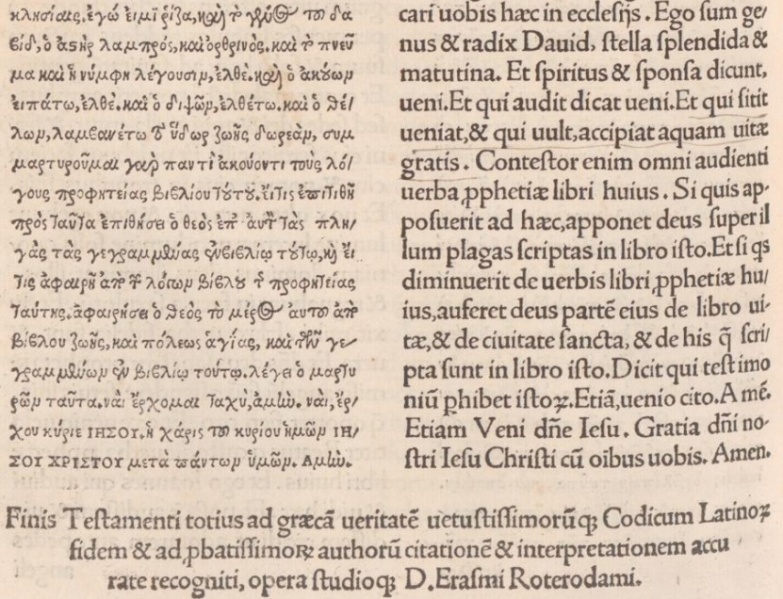 κλησίαις, ἐγώ εἰμι ῥίζα, καὶ τὸ γένος τοῦ δα
βίδ, ὁ ἀστὴρ λαμπρός, καὶ ὀρθρινός, καὶ τὸ πνεῦ
μα καὶ ἡ νύμφη λέγουσιν, ἐλθέ. καὶ ὁ ἀκούων
εἰπάτω, ἐλθέ. καὶ ὁ διψῶν, ἐλθέτω. καὶ ὁ θέ/
λων, λαμβανέτω τὸ ὕδωρ ζωῆς δωρεάν, συμ
μαρτυροῦμαι γὰρ παντὶ ἀκούοντι τοὺς λό/
γους προφητείας βιβλίου τούτου, εἴ τις ἐπιτιθῇ
πρὸς ταῦτα ἐπιθήσει ὁ θεὸς ἐπ' αὐτὸν τὰς πλη/
γὰς τὰς γεγραμμένας ἐν βιβλίῳ τούτῳ, καὶ εἴ
τις ἀφαιρῇ ἀπὸ τῶν λόγων βίβλου τῆς προφητείας
ταύτης, ἀφαιρήσει ὁ θεὸς τὸ μέρος αὐτοῦ ἀπὸ
βίβλου ζωῆς, καὶ πόλεως ἁγίας, καὶ τῶν γε/
γραμμένων ἐν βιβλίῳ τούτῳ. λέγει ὁ μαρτυ
ρῶν ταῦτα. ναὶ ἔρχομαι ταχὺ, ἀμήν. ναὶ, ἔρ/
χου κύριε ΙΗΣΟΥ. ἡ χάρις τοῦ κυρίου ἡμῶν ΙΗ/
ΣΟΥ ΧΡΙΣΤΟΥ μετὰ πάντων ὑμῶν. Ἀμήν.
cari uobis hæc in ecclesijs. Ego sum ge/
nus & radix Dauid, stella splendida &
matutina. Et spiritus & sponsa dicunt,
ueni. Et qui audit dicat ueni. Et qui sitit
ueniat, & qui uult, accipiat aquam uitæ
gratis. Contestor enim omni audienti
uerba ꝓphetiæ libri huius. Si quis ap-
posuerit ad hæc, apponet deus super il
lum plagas scriptas in libro isto. Et si qs
diminuerit de uerbis libri ꝓphetiæ hu/
ius, auferet deus partē eius de libro ui-
tæ, & de ciuitate sancta, & de his q̄ scri/
pta sunt in libro isto. Dicit qui testimo
niū phibet istoꝝ. Etiā, uenio cito. A mē.
Etiam Veni dñe Iesu. Gratia dñi no-
stri Iesu Christi cū oībus uobis. Amen.
Finis Testamenti totius ad græcā ueritatē uetustissimorūq; Codicum Latinoꝝ
fidem & ad ꝓbatissimoꝝ authorū citationē & interpretationem accu
rate recogniti, opera studioq; D. Erasmi Roterodami.